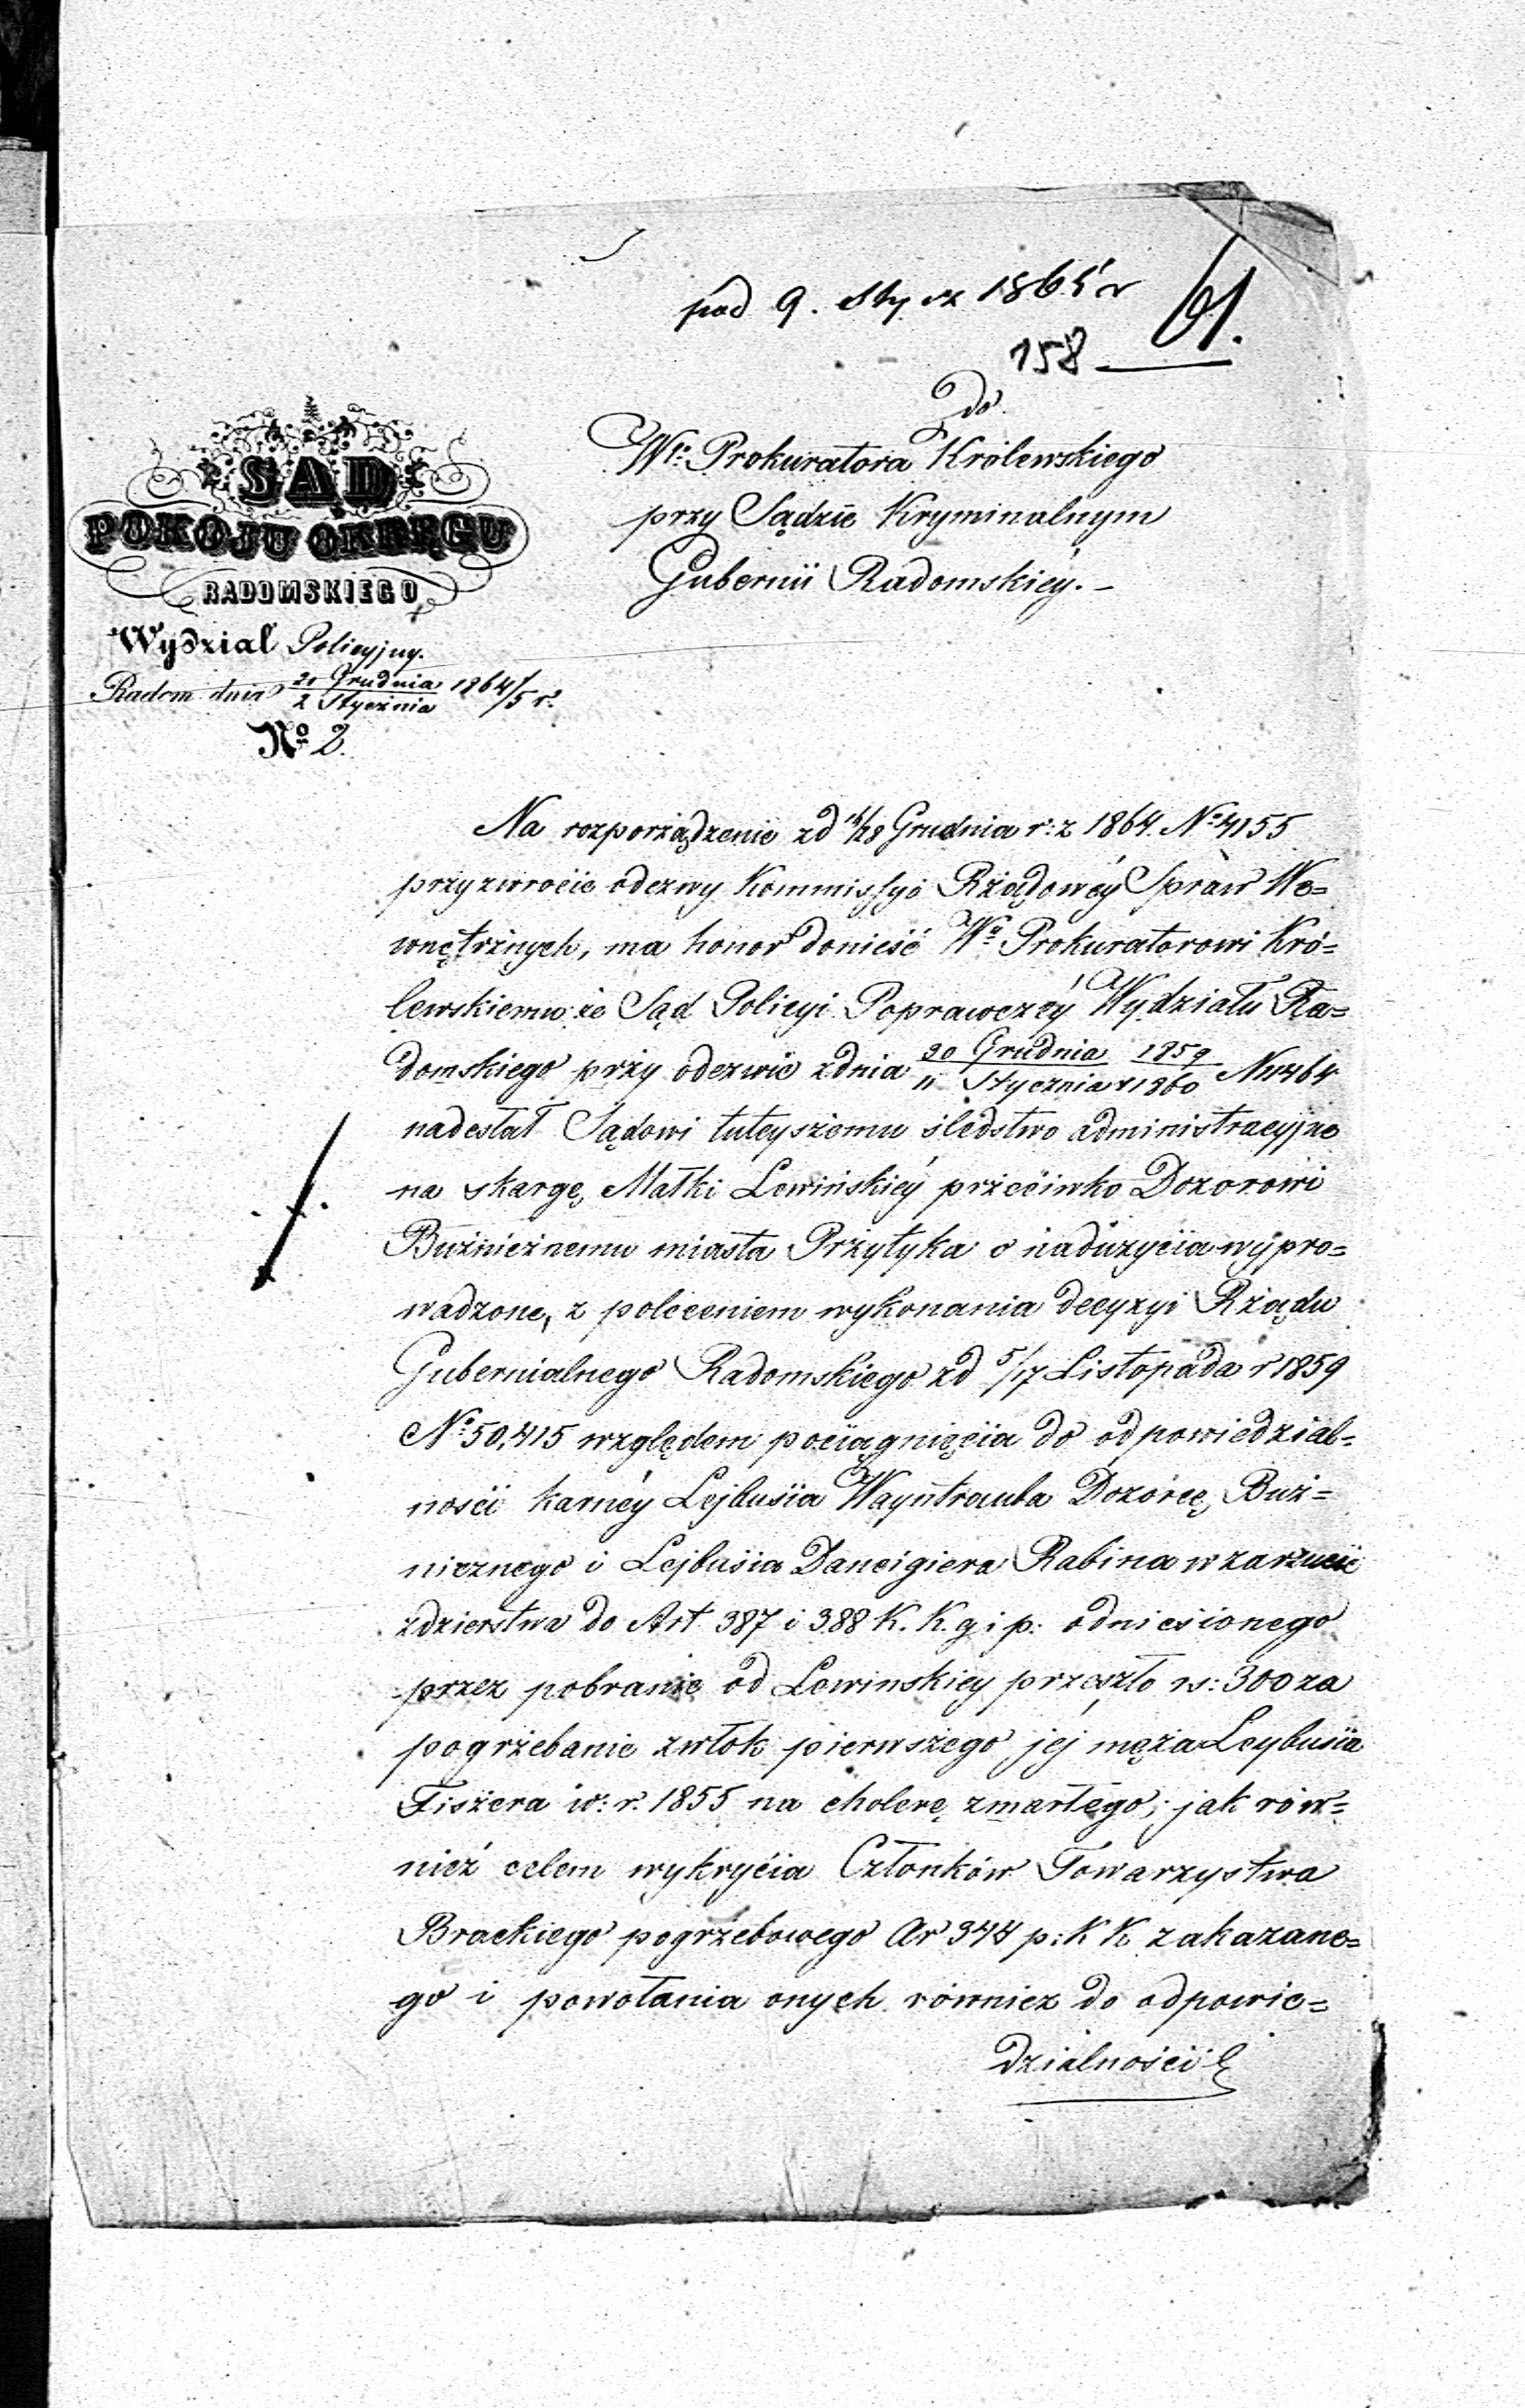 pod 9. Stycz 1865 r
61.
158
SĄD
POKOJU OKRĘGU
RADOMSKIEGO
Wydział Policyjny.
Radom dnia 21 Grudnia / 2 Stycznia 1864/5 r.
No 2.
Do
Wo Prokuratora Królewskiego
przy Sądzie Kryminalnym
Gubernii Radomskiéy. –
Na rozporządzenie zd 16/28 Grudnia r: z 1864. No 4155
przy zwrocie odezwy Kommissyi Rządowéy Spraw We=
wnętrznych, ma honor donieść Wu Prokuratorowi Kró=
lewskiemu że Sąd Policyi Poprawczéy Wydziału Ra=
domskiego przy odezwie zdnia 30 Grudnia 1859 / 11 Stycznia r 1860 N 11464
nadesłał Sądowi tuteyszemu śledstwo administracyjne
na skargę Małki Lewińskiéy przeciwko Dozorowi
Bużnicznemu miasta Przytyka o nadużycia wypro=
wadzone, z poleceniem wykonania decyzyi Rządu
Gubernialnego Radomskiego zd 5/17 Listopada r 1859
No 50,415 względem pociągnięcia do odpowiedzial=
ności karnéy Lejbusia Wayntrauba Dozórcę Buż=
nicznego i Lejbusia Dancigiera Rabina w zarzucie
zdzierstwa do Art 387 i 388 K. K. g i p: odniesionego
przez pobranie od Lewinskiey przeszło rs: 300 za
pogrzebanie zwłok pierwszego jéj męża Leybusia
Fiszera w: r. 1855 na cholerę zmarłego; jak rów=
nież celem wykrycia Członków Towarzystwa
Brackiego pogrzebowego Ar 344 p: K K zakazane=
go i powołania onych również do odpowie=
dzialności